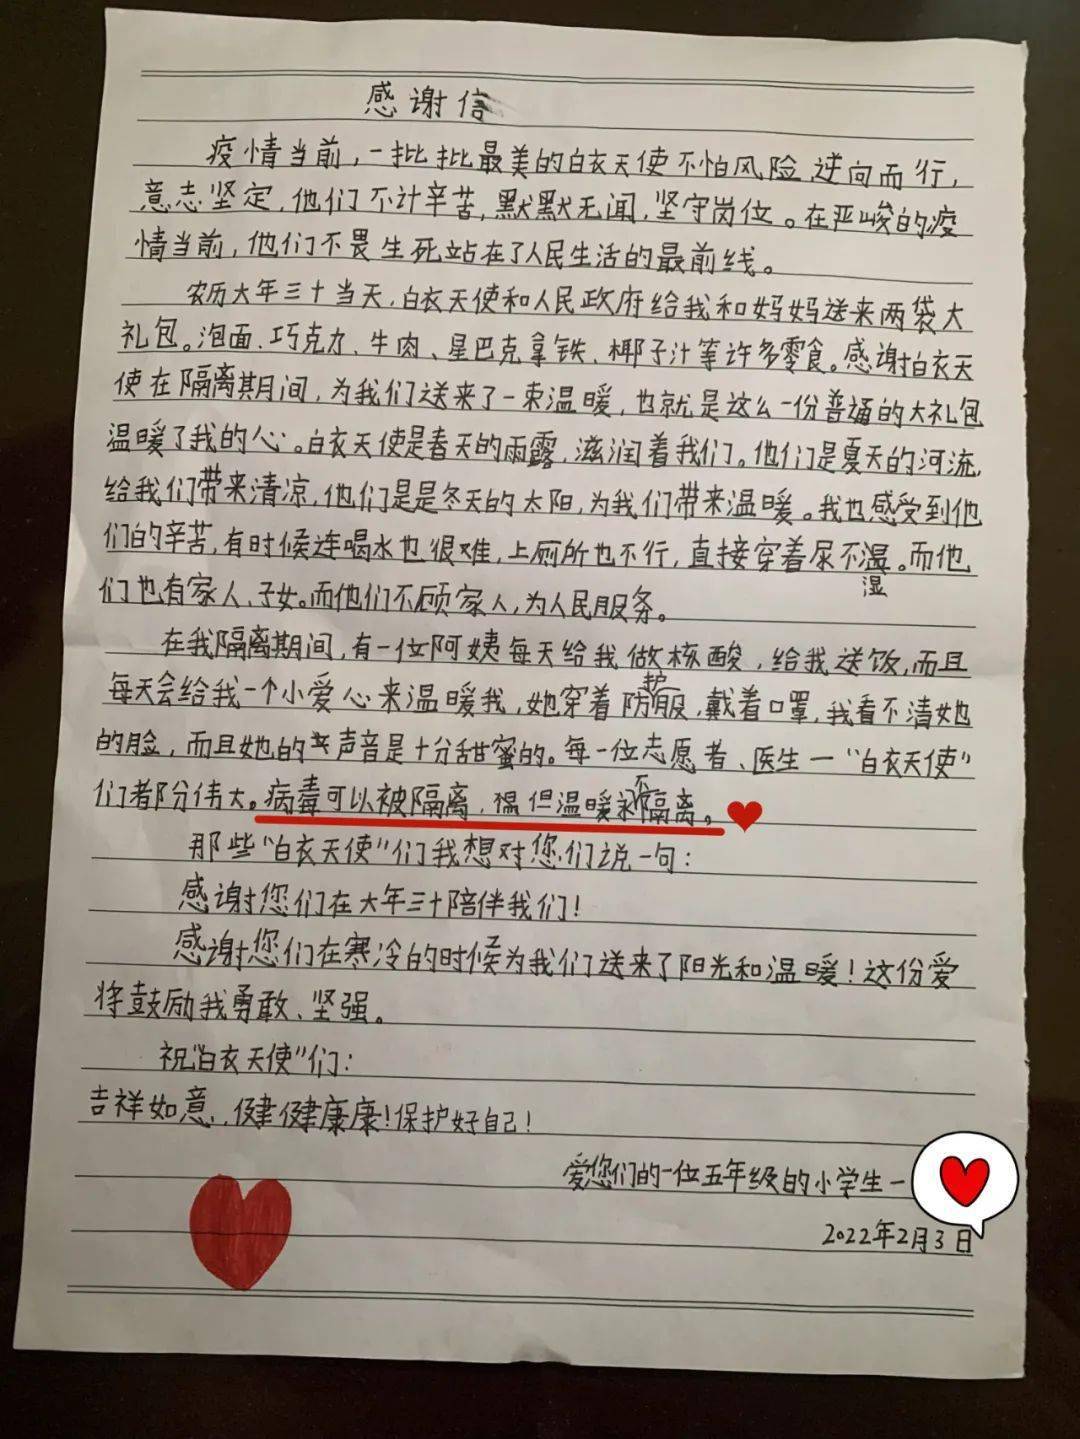 感谢信
疫情当前，一批批最美的白衣天使不怕风险逆向而行，
意志坚定，他们不计辛苦，默默无闻，坚守岗位。在严峻的疫
情当前，他们不畏生死站在了人民生活的最前线。
农历大年三十当天，白衣天使和人民政府给我和妈妈送来两袋大
礼包。泡面、巧克力、牛肉、星巴克拿铁、椰子汁等许多零食。感谢白衣天
使在隔离期间，为我们送来了一束温暖，也就是这么一份普通的大礼包
温暖了我的心。白衣天使是春天的雨露，滋润着我们。他们是夏天的河流，
给我们带来清凉，他们是是冬天的太阳，为我们带来温暖。我也感受到他
们的辛苦，有时候连喝水也很难，上厕所也不行，直接穿着尿不湿。而他
们也有家人、子女。而他们不顾家人，为人民服务。
在我隔离期间，有一位阿姨每天给我做核酸，给我送饭，而且
每天会给我一个小爱心来温暖我，她穿着防护服，戴着口罩，我看不清她
的脸，而且她的声音是十分甜蜜的。每一位志愿者、医生一“白衣天使”
们都分伟大。病毒可以被隔离，但温暖永不隔离。
那些“白衣天使”们我想对您们说一句：
感谢您们在大年三十陪伴我们！
感谢您们在寒冷的时候为我们送来了阳光和温暖！这份爱
将鼓励我勇敢、坚强。
祝“白衣天使”们：
吉祥如意，健健康康！保护好自己！
爱您们的一位五年级的小学生一
2022年2月3日